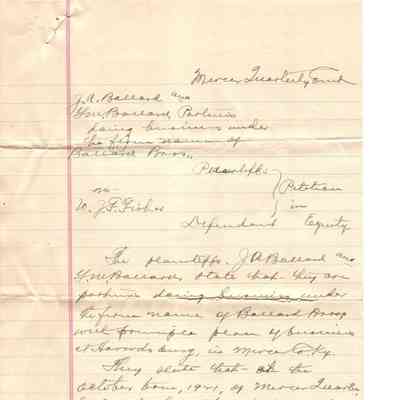 Mercer Quarterly Court
J. A. Ballard and
H. M. Ballard Partners
doing business under
the firm name of
Ballard Bros.,
Plaintiffs
Petition
vs-
in
W. J. F. Fisher
Defendant Equity
The plaintiffs J. A. Ballard and
H. M. Ballard, state that they are
partners doing business under
the firm name of Ballard Bros
with principle place of business
at Harrodsburg, in Mercer Co Ky.
They state that at the
October term, 1921, of Mercer Quarterly